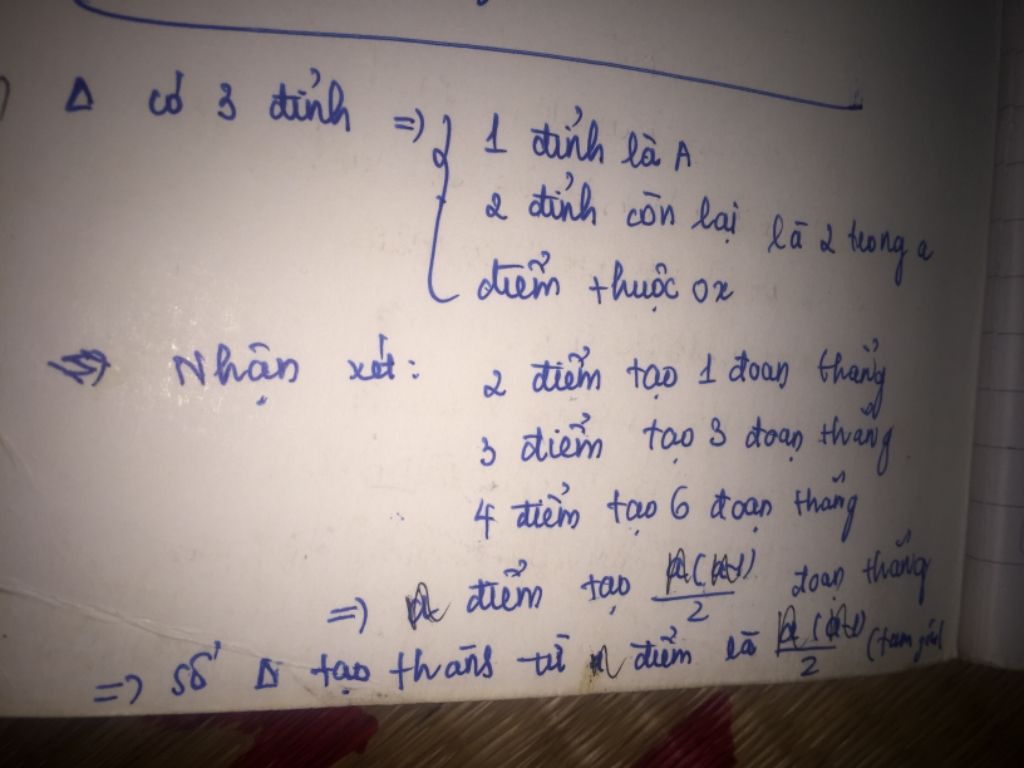 Δ có 3 đỉnh => { 1 đỉnh là A
2 đỉnh còn lại là 2 trong a
điểm thuộc Ox
Nhận xét: 2 điểm tạo 1 đoạn thẳng
3 điểm tạo 3 đoạn thẳng
4 điểm tạo 6 đoạn thẳng
=> điểm tạo /2 đoạn thẳng
=> số Δ tạo thành từ điểm là /2 (tam giác)